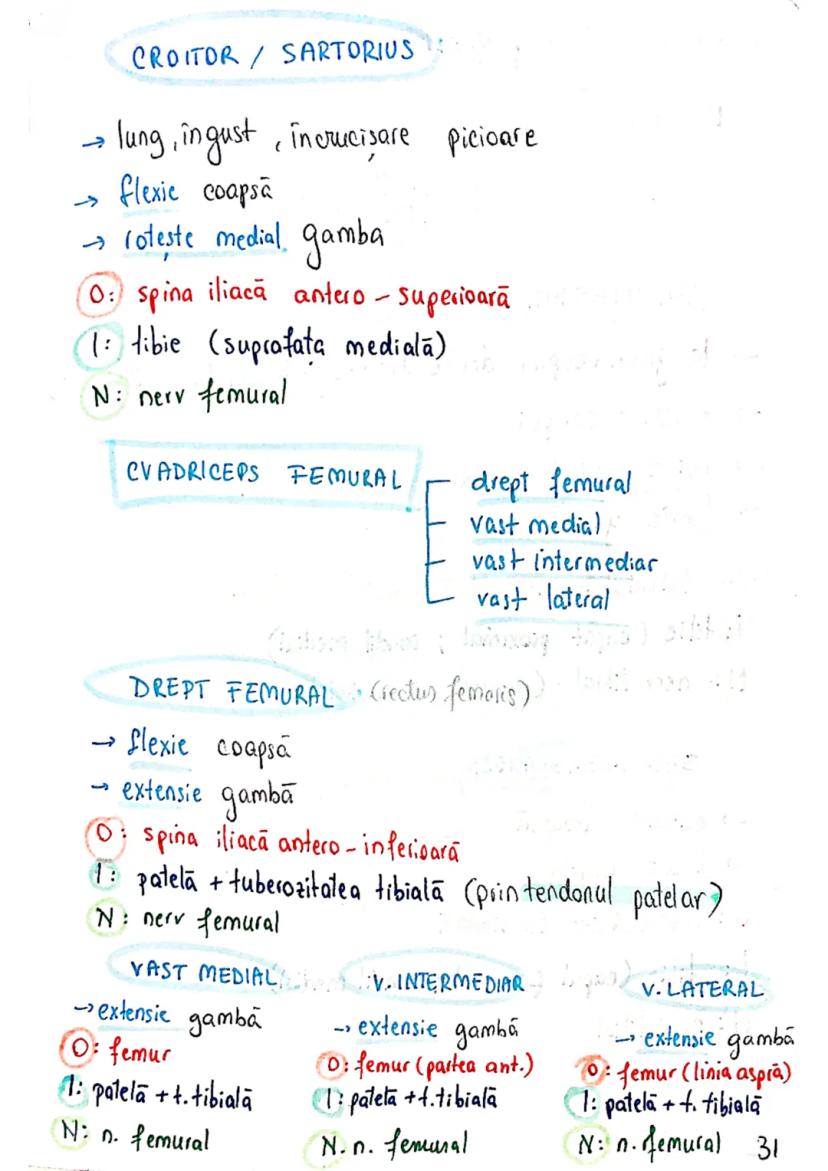 CROITOR / SARTORIUS
→ lung, îngust, încrucișare picioare
→ flexie coapsă
→ rotește medial gamba
O: spina iliacă antero - superioară
I: tibie (suprafața medială)
N: nerv femural
CVADRICEPS FEMURAL
drept femural
vast medial
vast intermediar
vast lateral
DREPT FEMURAL (rectus femoris)
→ flexie coapsă
→ extensie gambă
O: spina iliacă antero - inferioară
I: patelă + tuberozitatea tibială (prin tendonul patelar)
N: nerv femural
VAST MEDIAL
→ extensie gambă
O: femur
I: patelă + t. tibială
N: n. femural
V. INTERMEDIAR
→ extensie gambă
O: femur (partea ant.)
I: patelă + t. tibială
N. n. femural
V. LATERAL
→ extensie gambă
O: femur (linia aspră)
I: patelă + t. tibială
N: n. femural
31